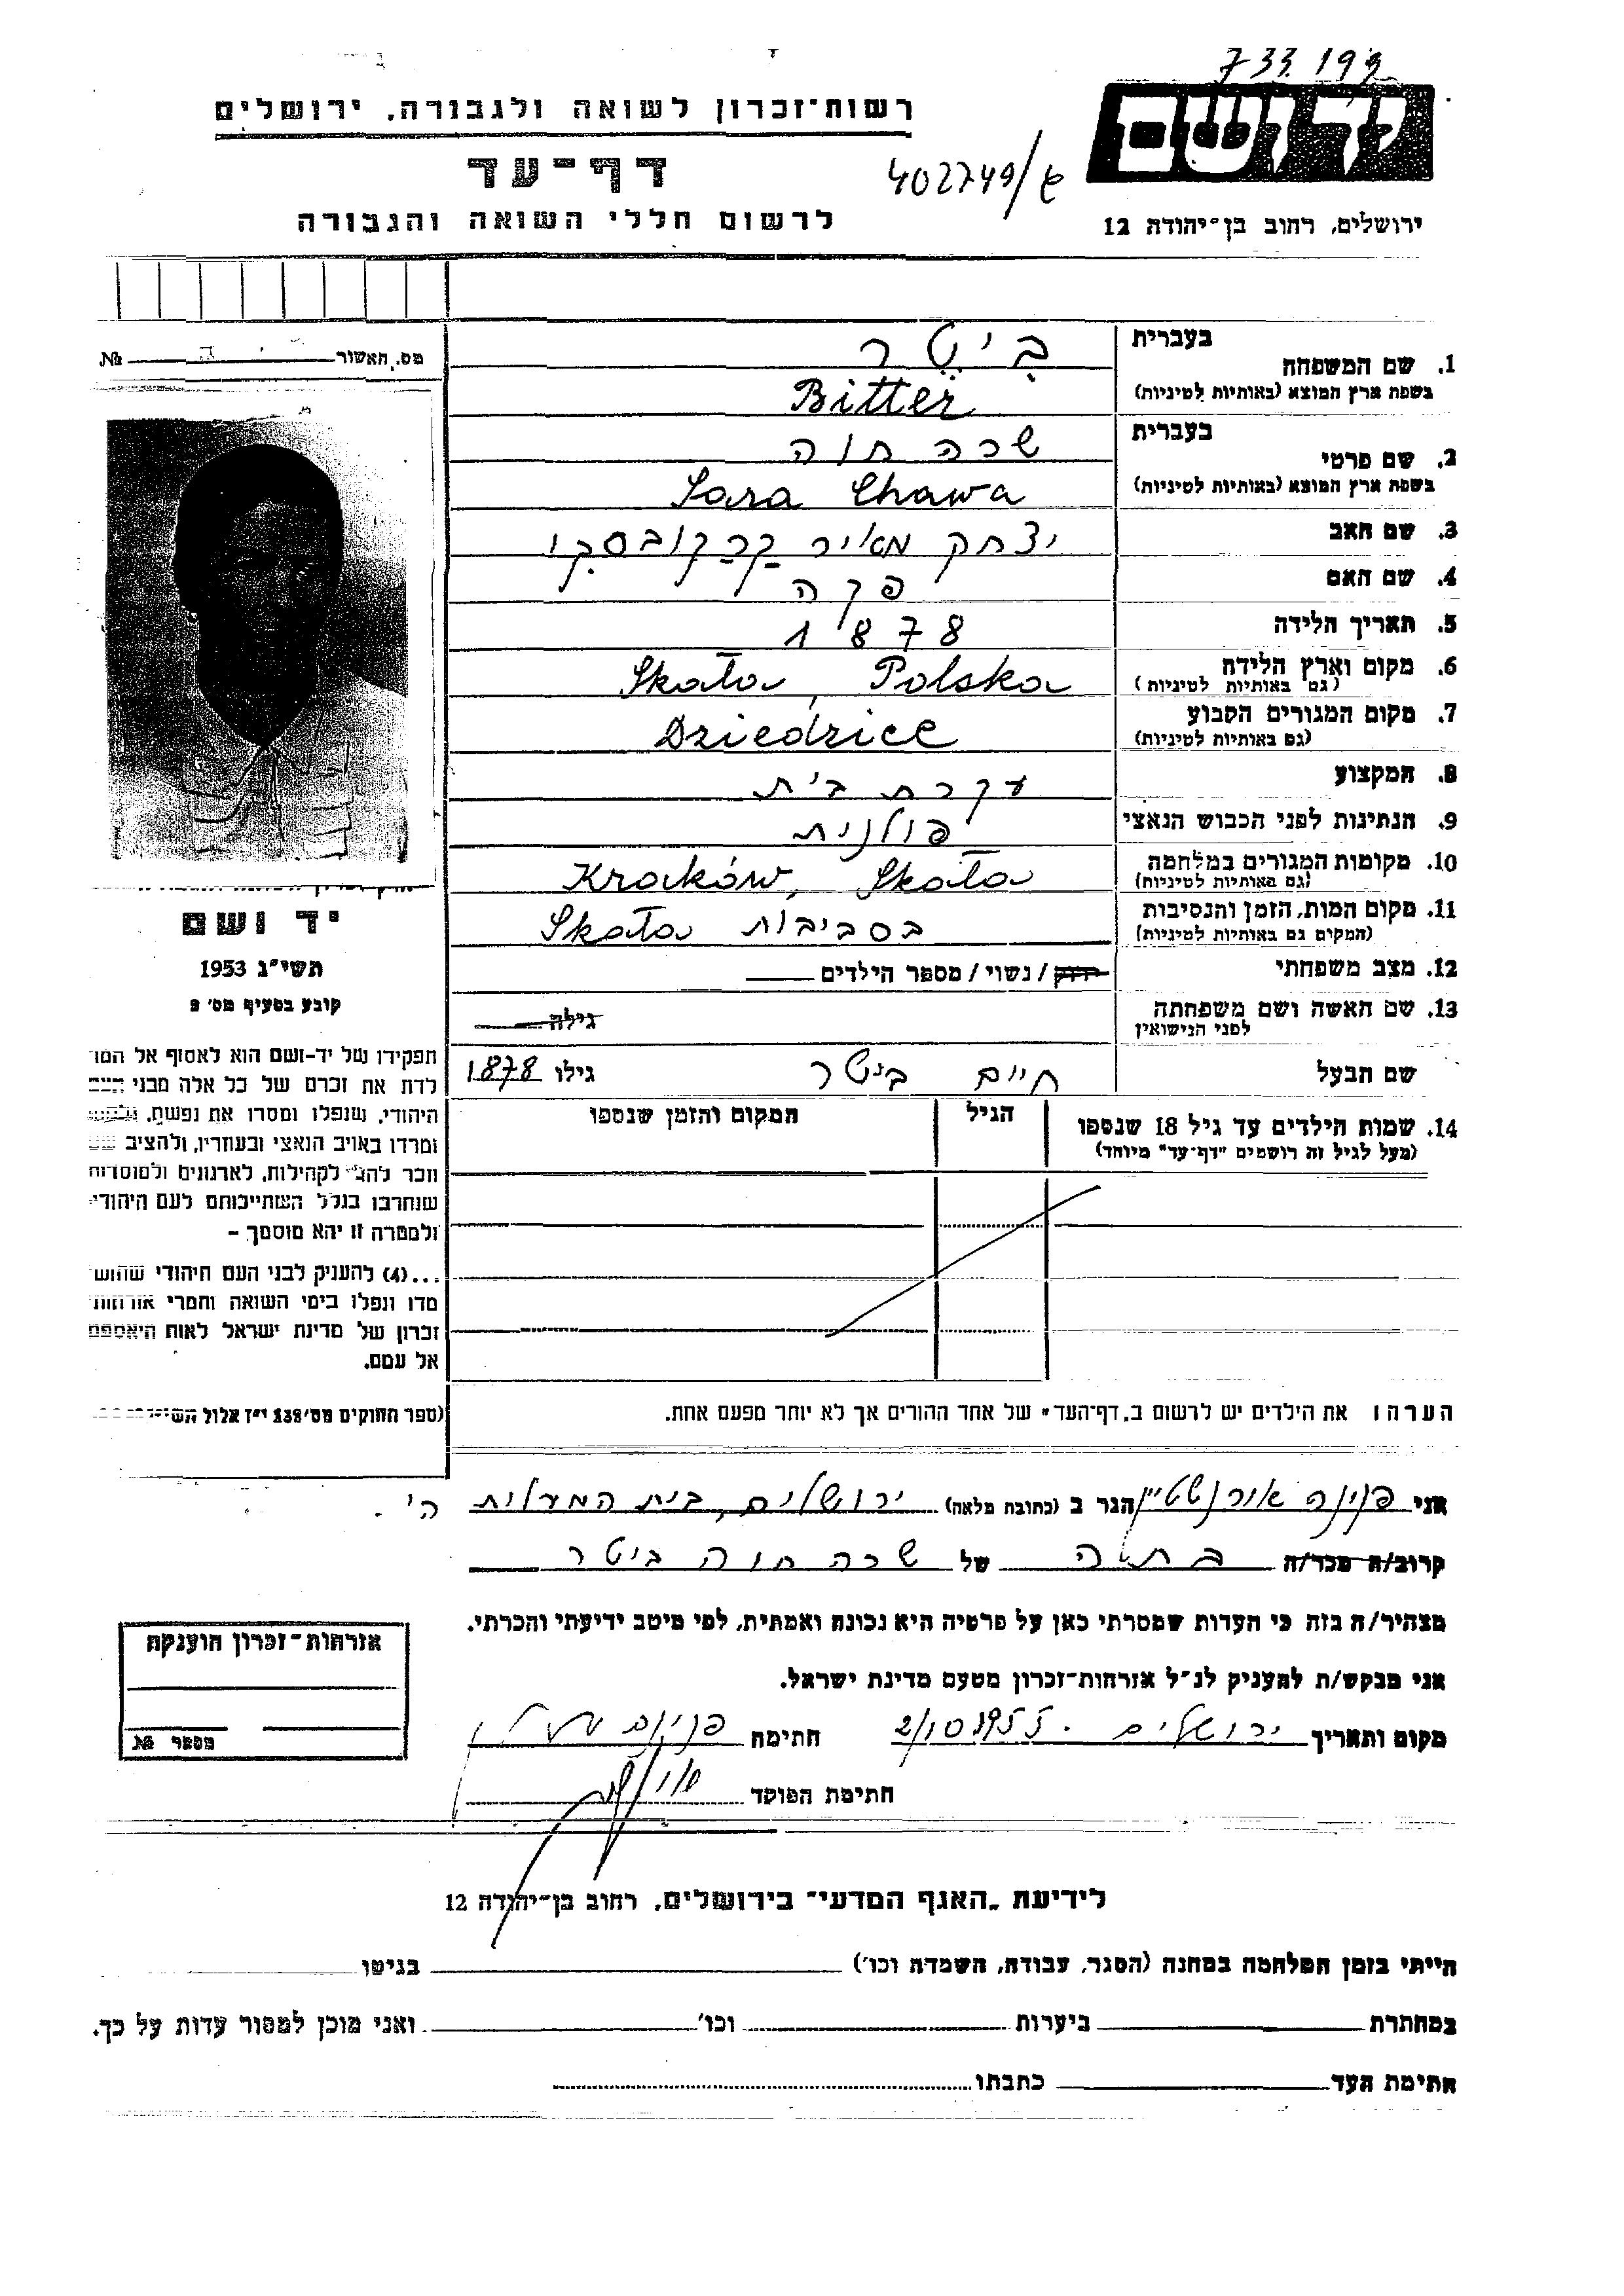 733.199
רשות־זכרון לשואה ולגבורה, ירושלים
דף־עד
402749/
לרשום חללי השואה והגבורה
ירושלים, רחוב בן־יהודה 12
1. שם המשפחה בעברית ביטר
בשפת ארץ המוצא (באותיות לטיניות) Bitter
2. שם פרטי בעברית שרה חוה
בשפת ארץ המוצא (באותיות לטיניות) Sara Chawa
3. שם האב יצחק מאיר קרקובסקי
4. שם האם
5. תאריך הלידה 1878
6. מקום וארץ הלידה (גם באותיות לטיניות) Skała, Polska
7. מקום המגורים הקבוע (גם באותיות לטיניות) Dziedzice
8. המקצוע עקרת בית
9. הנתינות לפני הכבוש הנאצי פולנית
10. מקומות המגורים במלחמה (גם באותיות לטיניות) Kraków, Skała
11. מקום המות, הזמן והנסיבות (המקום גם באותיות לטיניות) בסביבות Skała
12. מצב משפחתי רווק / נשוי / מספר הילדים
13. שם האשה ושם משפחתה לפני הנישואין גילה
שם הבעל חיים ביטר גילו 1878
14. שמות הילדים עד גיל 18 שנספו (מעל לגיל זה רושמים "דף־עד" מיוחד) הגיל המקום והזמן שנספו
מס. האשור №
יד ושם
תשי"ג 1953
קובע בסעיף מס' 2
תפקידו של יד־ושם הוא לאסוף אל המו
לדת את זכרם של כל אלה מבני העם
היהודי, שנפלו ומסרו את נפשם,
ומרדו באויב הנאצי ובעוזריו, ולהציב שם
וזכר להם, לקהילות, לארגונים ולמוסדות
שנחרבו בגלל השתייכותם לעם היהודי
ולמטרה זו יהא מוסמך –
...(4) להעניק לבני העם היהודי שהוש
מדו ונפלו בימי השואה והמרי אזרחות
זכרון של מדינת ישראל לאות היאספם
אל עמם.
(ספר החוקים מס' 132 י"ז אלול
הערה: את הילדים יש לרשום ב"דף־העד" של אחד ההורים אך לא יותר מפעם אחת.
אני פנינה אורנשטיין הגר ב (כתובת מלאה) ירושלים, בית המעלות ה'
קרוב/ה מכר/ה בתה של שרה חוה ביטר
מצהיר/ה בזה כי העדות שמסרתי כאן על פרטיה היא נכונה ואמתית, לפי מיטב ידיעתי והכרתי.
אני מבקש/ת להעניק לנ"ל אזרחות־זכרון מטעם מדינת ישראל.
מקום ותאריך ירושלים 2/10.1955 חתימה
חתימת הפוקד
אזרחות־זכרון הוענקה
מספר №
לידיעת "האגף המדעי" בירושלים, רחוב בן־יהודה 12
הייתי בזמן המלחמה במחנה (הסגר, עבודה, השמדה וכו') בגיטו
במחתרת ביערות וכו' ואני מוכן למסור עדות על כך.
חתימת העד כתבתו